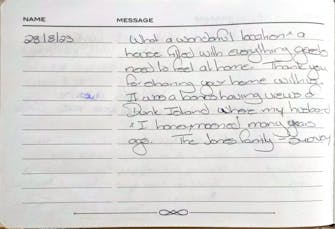 NAME MESSAGE
28/8/23 What a wonderful location & a
house filled with everything guests
need to feel at home. Thank you
for sharing your home with us
It was a bonus having views of
Dunk Island where my husband
& I honeymooned many years
ago. The Jones family - Surrey